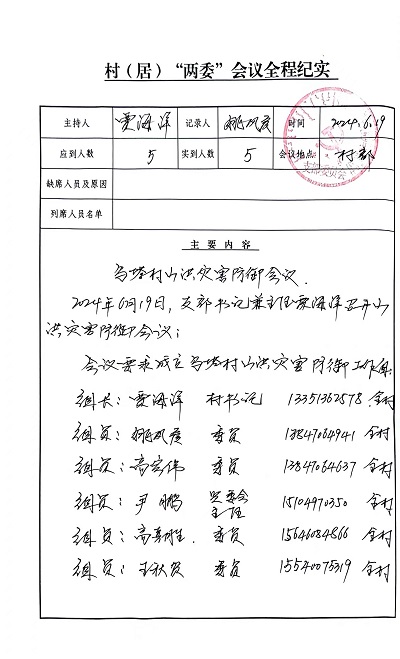 村（居）“两委”会议全程纪实
主持人 贾海洋 记录人 时间 2024.6.19
应到人数 5 实到人数 5 会议地点 村部
缺席人员及原因
列席人员名单
主 要 内 容
乌塔村山洪灾害防御会议.
2024年6月19日，支部书记兼主任贾海洋召开山
洪灾害防御会议；
会议要求成立乌塔村山洪灾害防御工作组
组长：贾海洋 村书记 13351362578 全村
组员： 委员 13847064941 全村
组员：高宏伟 委员 13847064637 全村
组员：尹鹏 监委会主任 15104970350 全村
组员： 委员 15646084866 全村
组员： 委员 15540075319 全村
支部委员会